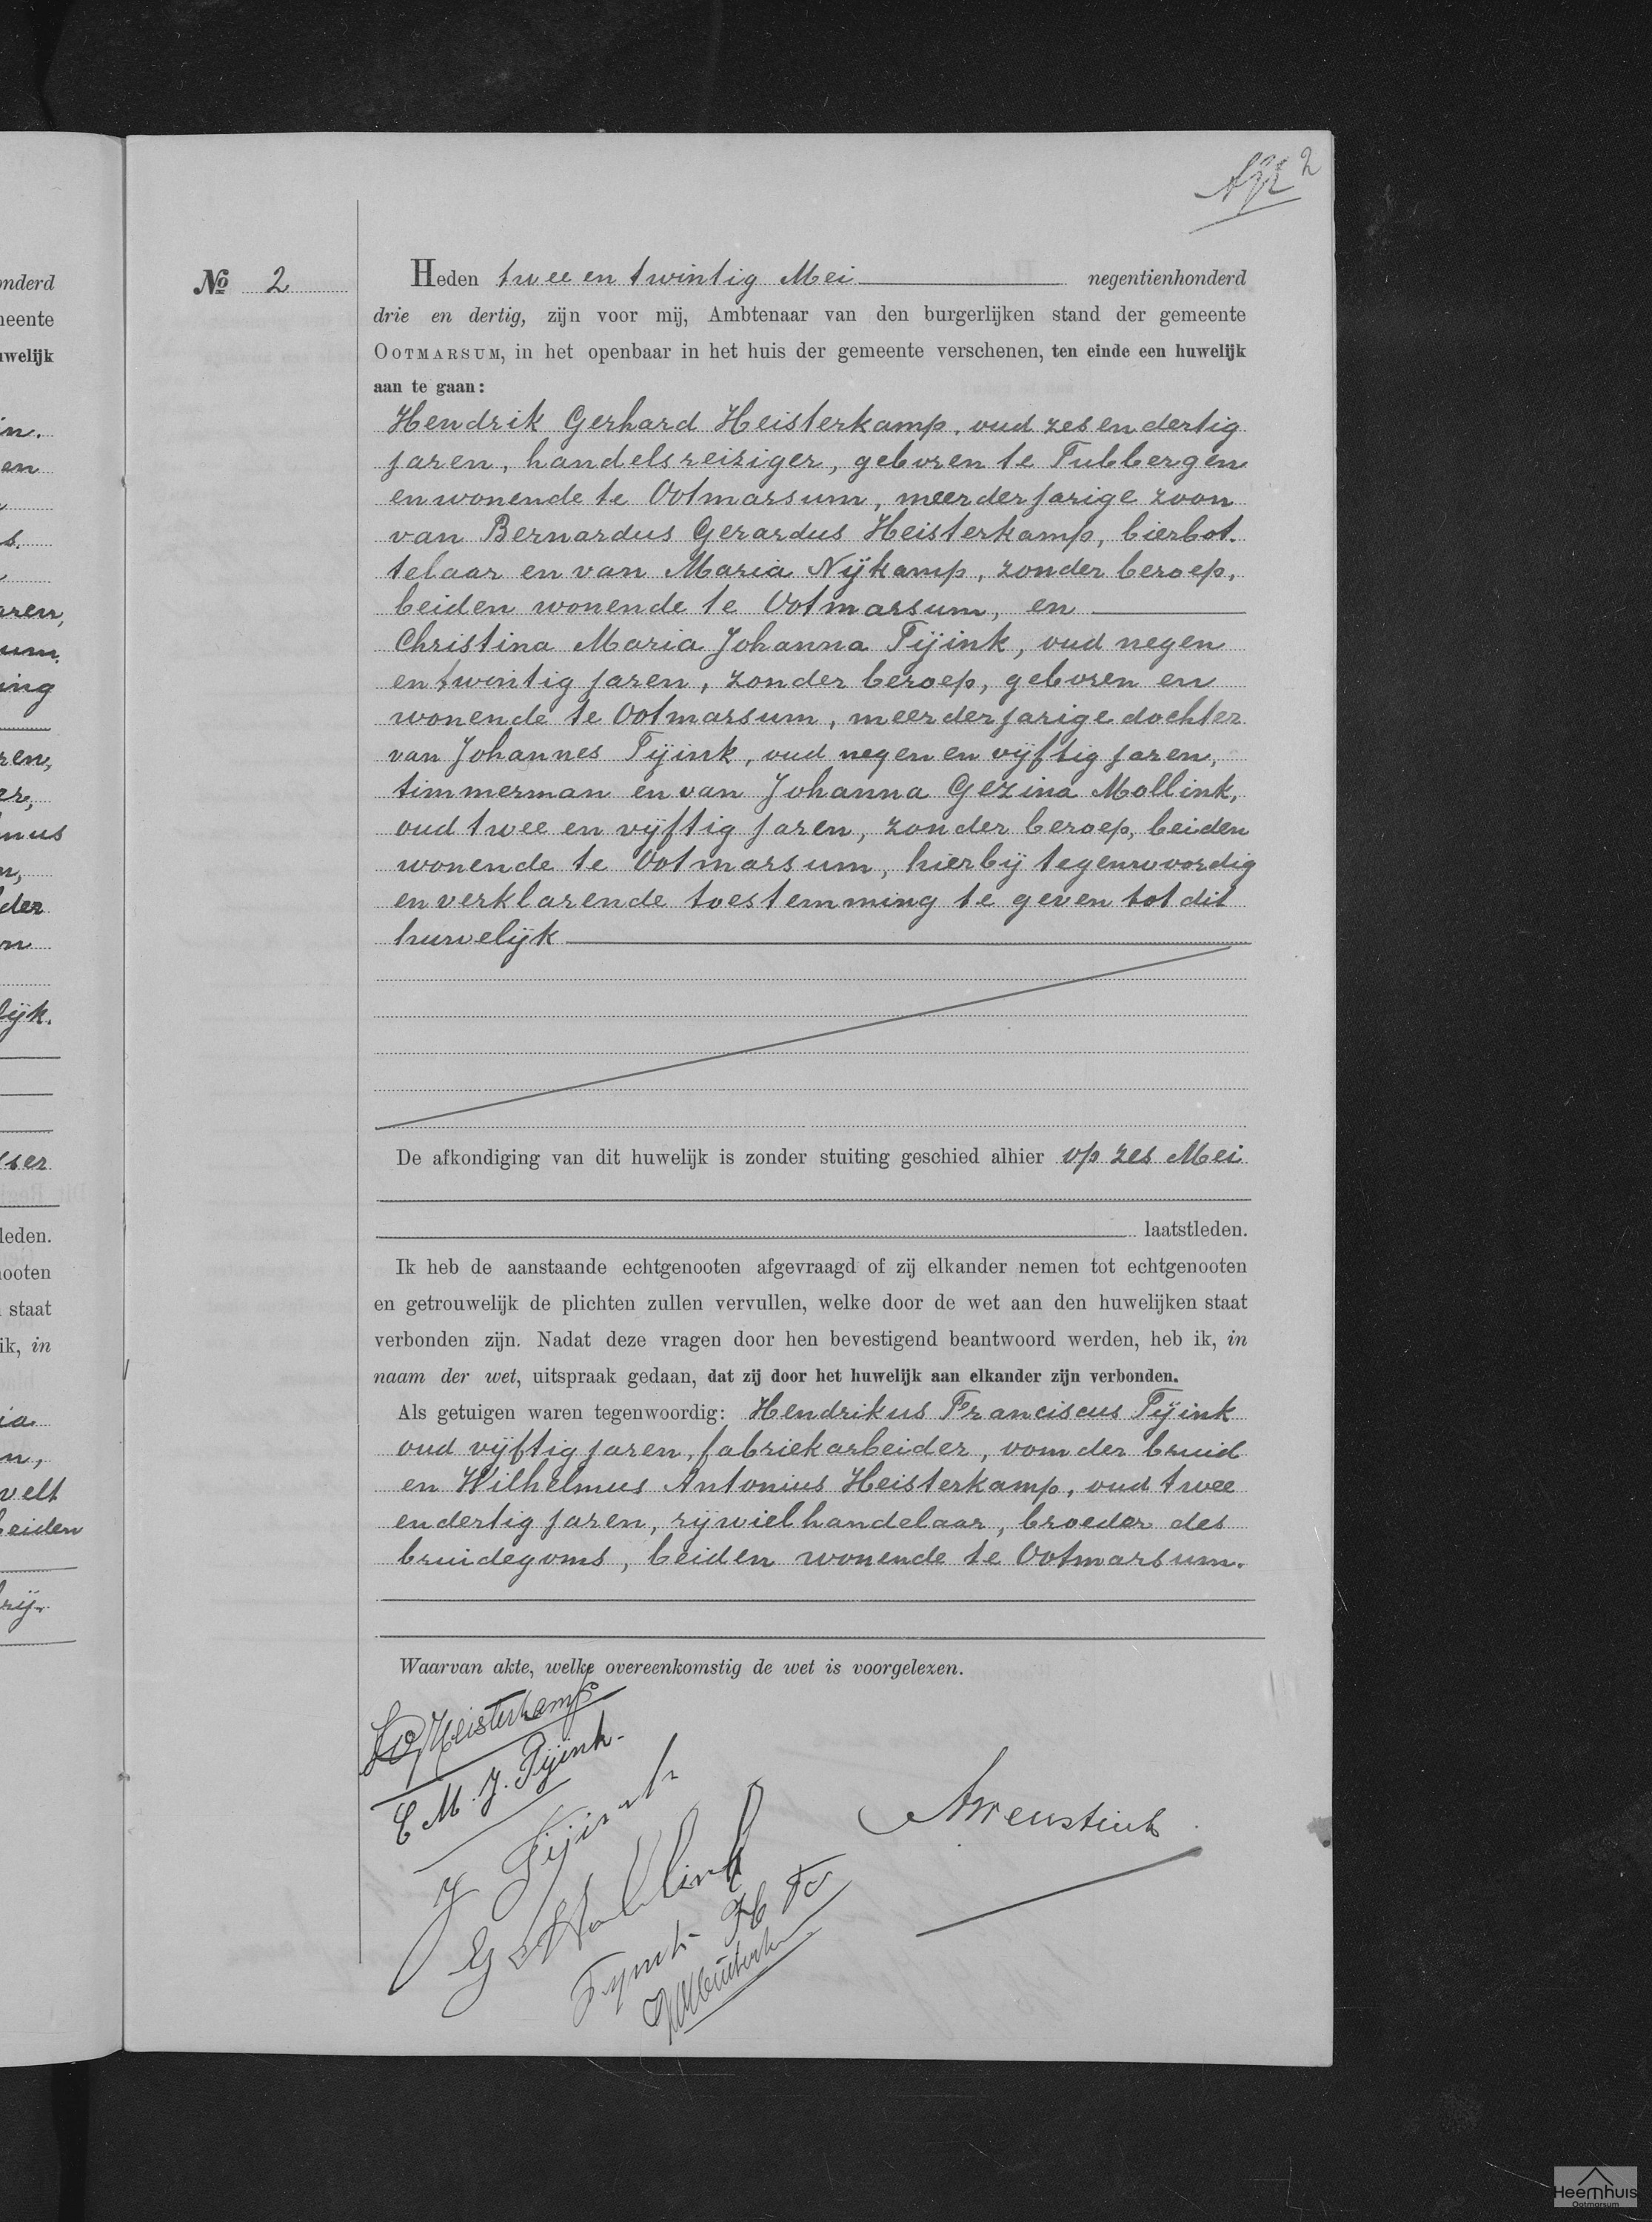 2
nderd
neente
uwelijk
n.
en
s.
aren,
um.
ing
ren,
er,
nus
n,
der
n
lijk.
ser
leden.
nooten
staat
ik, in
ia
n,
velt
beiden
rij-
No 2
Heden twee en twintig Mei negentienhonderd
drie en dertig, zijn voor mij, Ambtenaar van den burgerlijken stand der gemeente
OOTMARSUM, in het openbaar in het huis der gemeente verschenen, ten einde een huwelijk
aan te gaan:
Hendrik Gerhard Heisterkamp, oud zes en dertig
jaren, handelsreiziger, geboren te Tubbergen
en wonende te Ootmarsum, meerderjarige zoon
van Bernardus Gerardus Heisterkamp, bierbot-
telaar en van Maria Nijkamp, zonder beroep,
beiden wonende te Ootmarsum, en
Christina Maria Johanna Tijink, oud negen
en twintig jaren, zonder beroep, geboren en
wonende te Ootmarsum, meerderjarige dochter
van Johannes Tijink, oud negen en vijftig jaren,
timmerman en van Johanna Gezina Mollink,
oud twee en vijftig jaren, zonder beroep, beiden
wonende te Ootmarsum, hierbij tegenwoordig
en verklarende toestemming te geven tot dit
huwelijk
De afkondiging van dit huwelijk is zonder stuiting geschied alhier op zes Mei
laatstleden.
Ik heb de aanstaande echtgenooten afgevraagd of zij elkander nemen tot echtgenooten
en getrouwelijk de plichten zullen vervullen, welke door de wet aan den huwelijken staat
verbonden zijn. Nadat deze vragen door hen bevestigend beantwoord werden, heb ik, in
naam der wet, uitspraak gedaan, dat zij door het huwelijk aan elkander zijn verbonden.
Als getuigen waren tegenwoordig: Hendrikus Franciscus Tijink
oud vijftig jaren, fabriekarbeider, oom der bruid
en Wilhelmus Antonius Heisterkamp, oud twee
en dertig jaren, rijwielhandelaar, broeder des
bruidegoms, beiden wonende te Ootmarsum.
Waarvan akte, welke overeenkomstig de wet is voorgelezen.
Heisterkamp
C. M. J. Tijink.
J Tijink
G Mollink
Tijink H F
Heemhuis
Ootmarsum